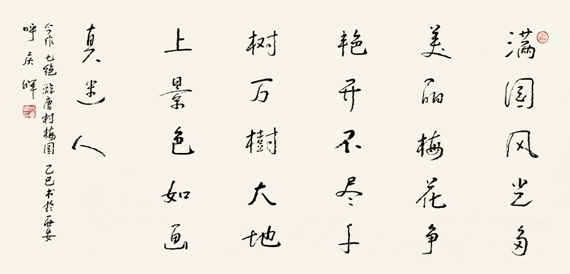 满园风光多
美丽梅花争
艳开不尽千
树万樹大地
上景色如画
真迷人
今作七绝游唐村梅园乙巳书於西安
呼庆晖